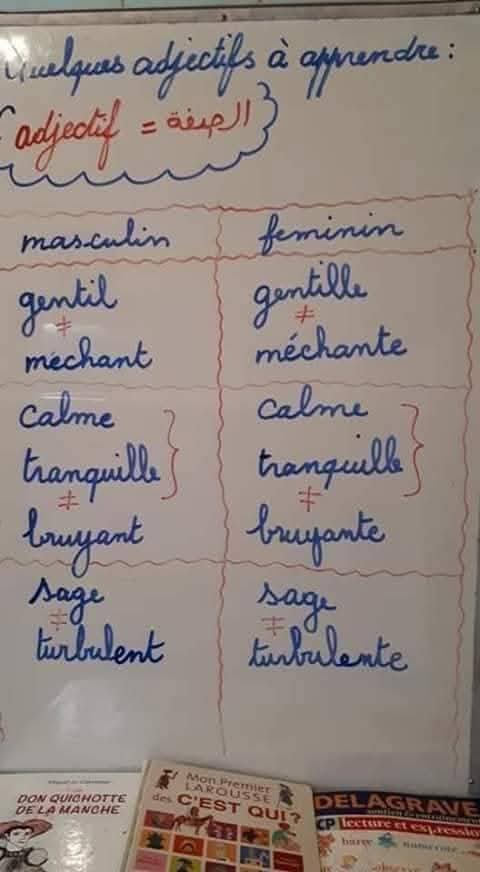 Quelques adjectifs à apprendre :
adjectif = الصفة
masculin feminin
gentil gentille
≠ ≠
méchant méchante
calme calme
tranquille tranquille
≠ ≠
bruyant bruyante
sage sage
≠ ≠
turbulent turbulente
DON QUICHOTTE
DE LA MANCHE
Mon Premier
LAROUSSE
des C'EST QUI ?
DELAGRAVE
CP lecture et expression